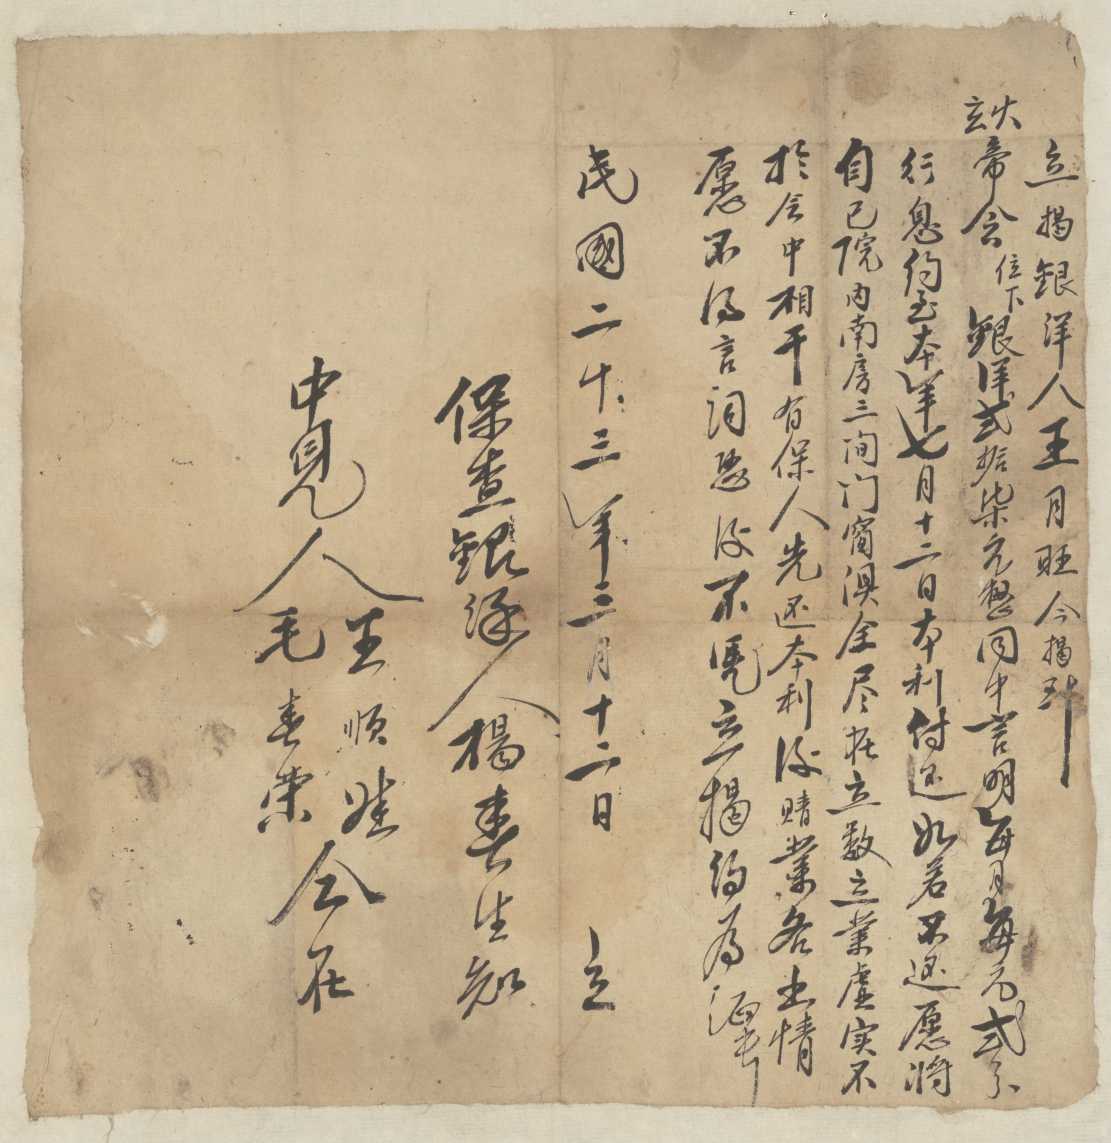 立揭銀洋人王月旺今揭到
玄火帝会位下銀洋弍拾柒元整同中言明每月每元弍分
行息約至本年七月十二日本利付还如若不还愿将
自己院内南房三间门窗俱全尽在立数立業虚实不
於会中相干有保人先还本利後賭業各出情
愿不得言词恐後不凭立揭約為証
民國二十三年三月十二日 立
保查銀緣人楊春生知
中見人王順娃 毛春荣仝在